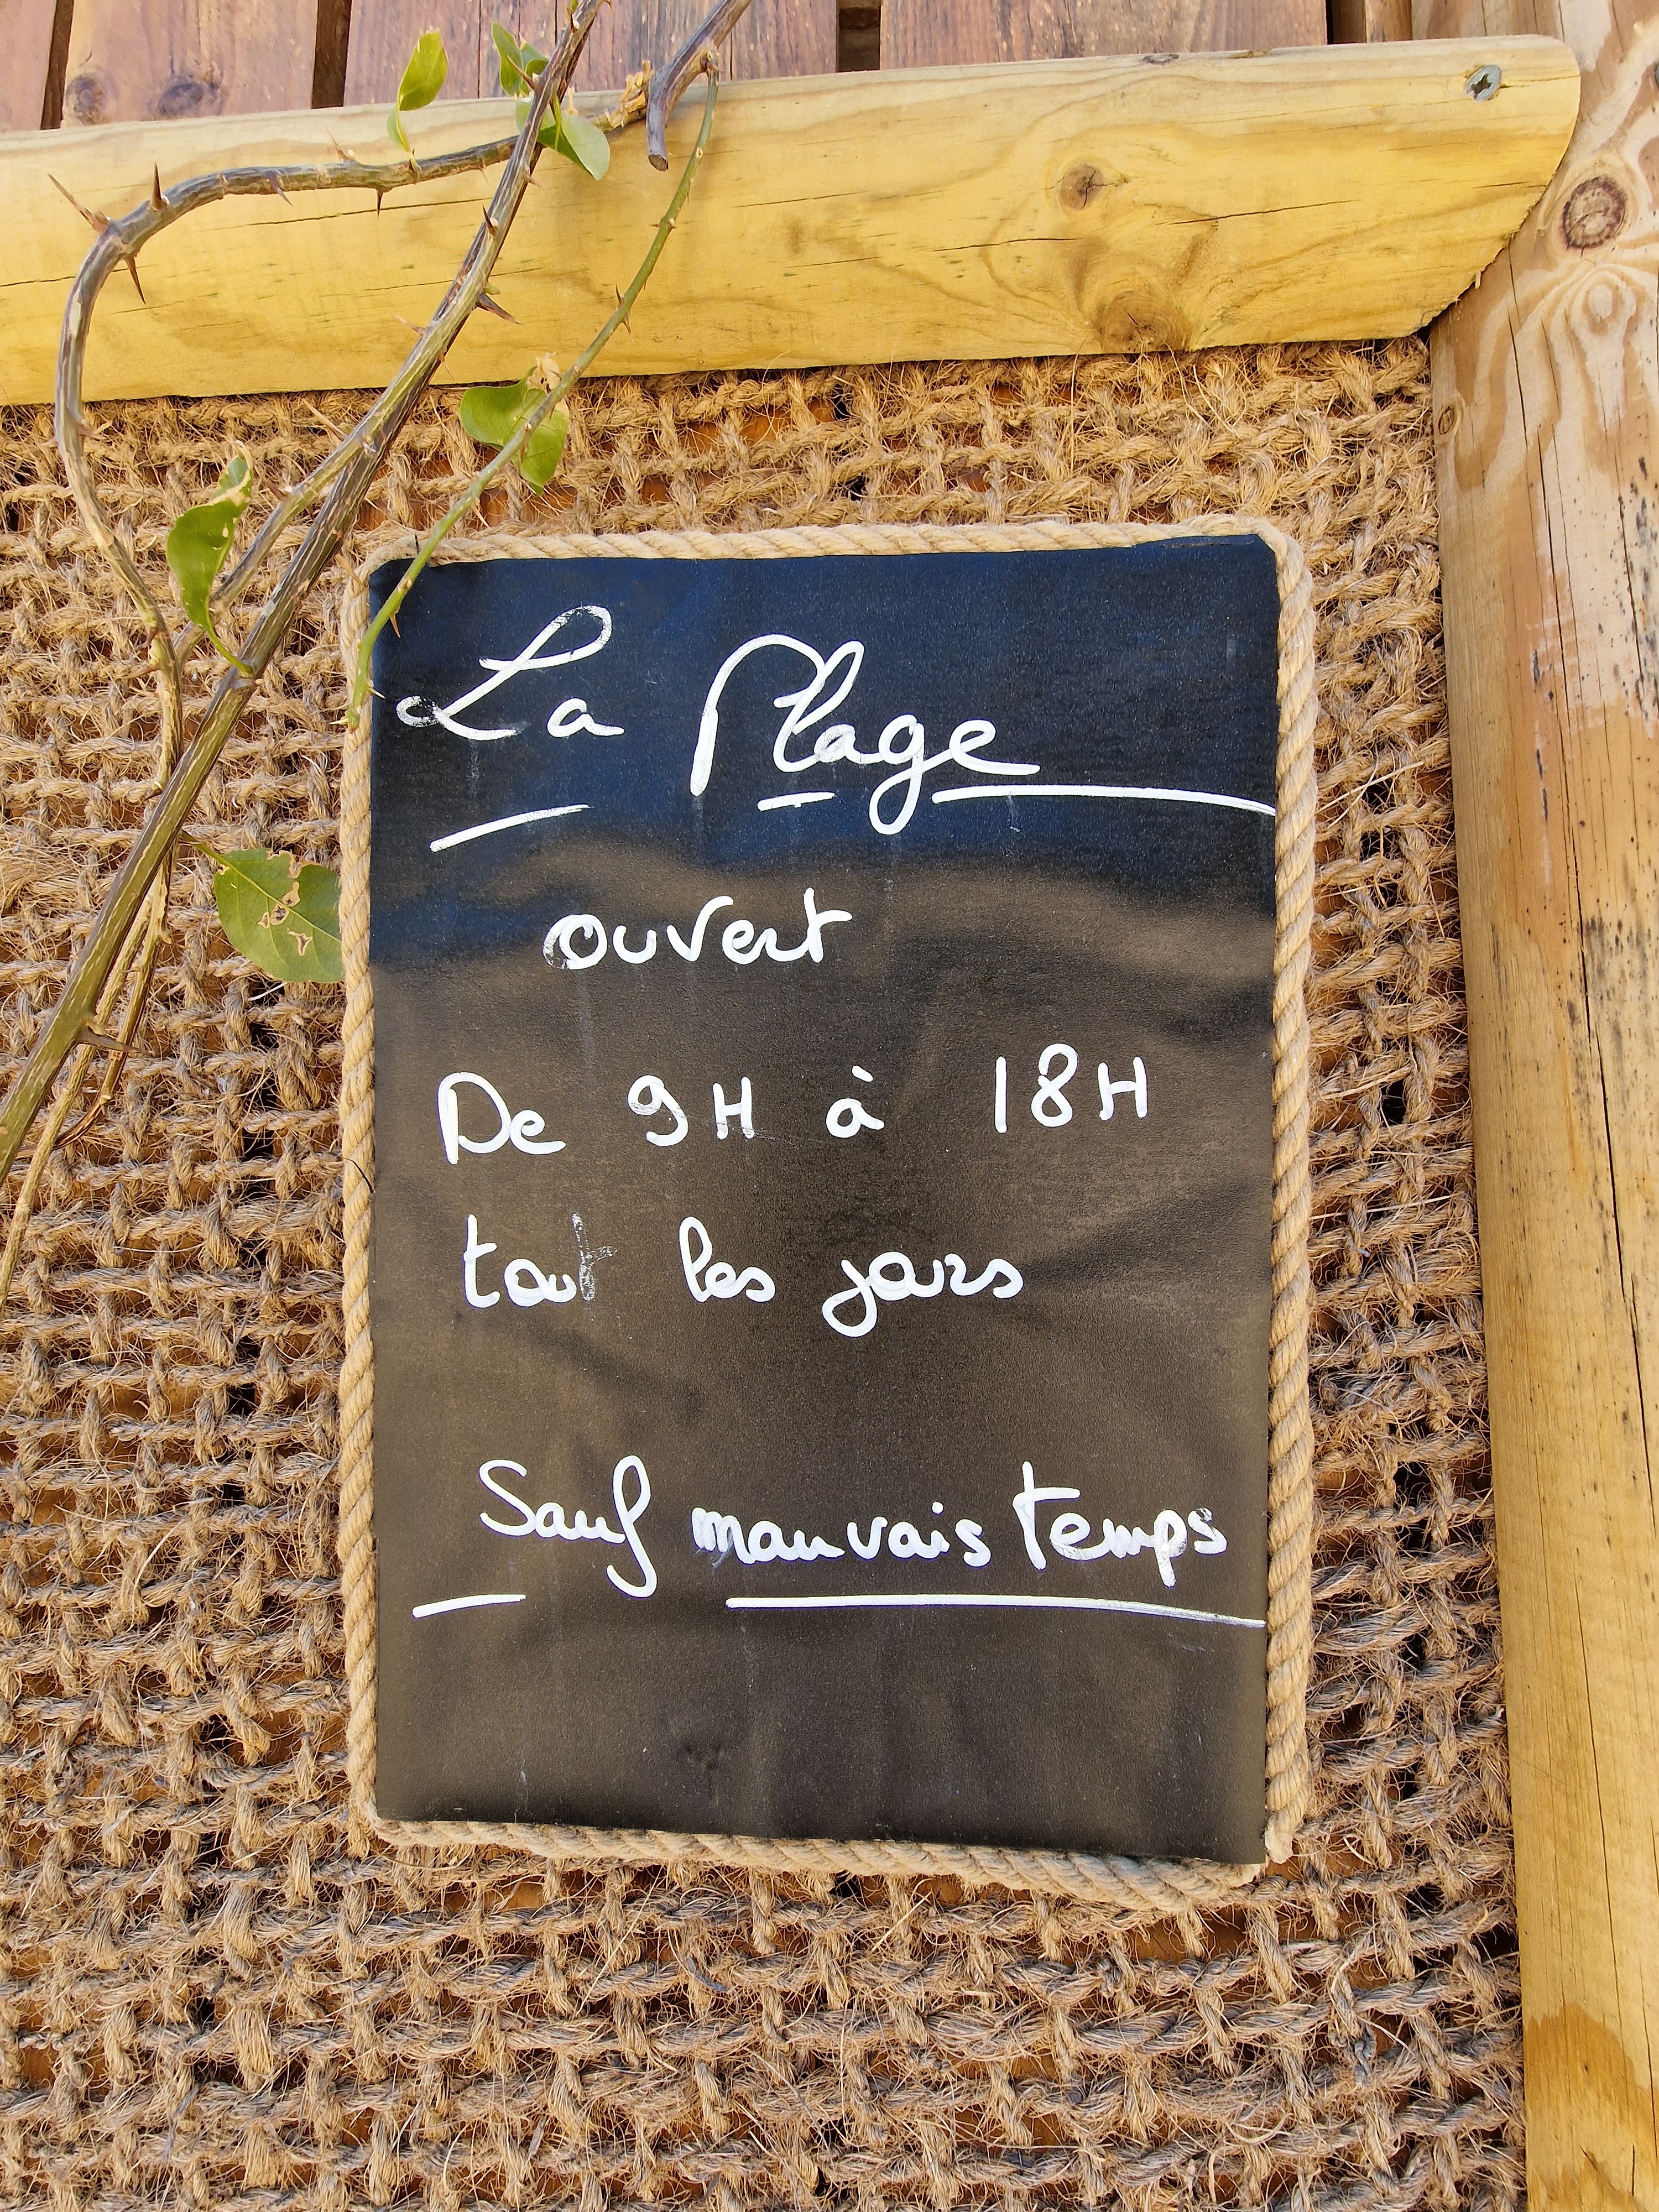 La Plage
ouvert
De 9H à 18H
tout les jours
Sauf mauvais temps